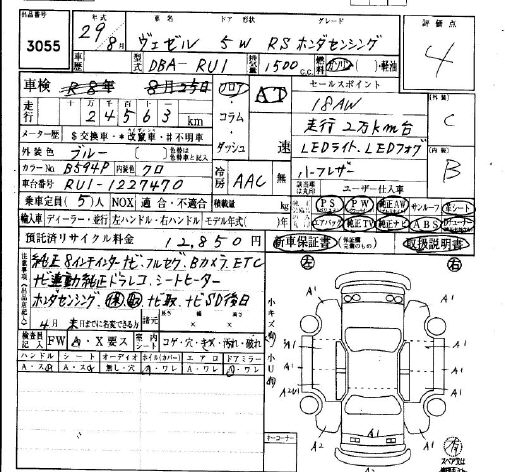 出品番号
3055
年式 車名 ドア 形状 グレード
29/8月 ヴェゼル 5W RS ホンダセンシング
車歴 型式 DBA-RU1 排気量 1500 c.c. 燃料 ガソリン・軽油
評価点
4
外装
C
内装
B
車検 R8年 8月25日
走行 十 万 千 百 十 一
2 4 5 6 3 km
メーター歴 $ 交換車・* 改竄車・# 不明車
外装色 ブルー
色替は色替車と記入
カラーNo B594P 内装色 クロ
車台番号 RU1-1227470
乗車定員(5)人 NOX 適合・不適合
輸入車 ディーラー・並行 左ハンドル・右ハンドル モデル年式( )年
フロア・コラム・ダッシュ
AT
速
冷房 AAC 無
積載量 kg
セールスポイント
18AW
走行2万km台
LEDライト、LEDフォグ
ハーフレザー
ユーザー仕入車
PS PW 純正AW サンルーフ 革シート
エアバッグ 純正TV 純正ナビ ABS
預託済リサイクル料金 12,850円
新車保証書 取扱説明書
注意事項(出品店記入)
純正8インチインターナビ、フルセグ、Bカメラ、ETC
ナビ連動純正ドラレコ、シートヒーター
ホンダセンシング、保取、ナビ取、ナビSD後日
4月末日までに名変できる方
諸元 長さ 幅 高さ
検査員記入 FW A・X要ス 室内シート コゲ・穴・キズ・汚れ・破れ
ハンドル シート オーディオ ホイル(カバー) エアロ ドアミラー
A・ス A・ス 無し・穴 A・ワレ A・ワレ A・ワレ
左 右
小キズ(有)
小U(有)
A1 A1
A1 A1
A1 A1
A1
A2 A1
キーコーナー
有